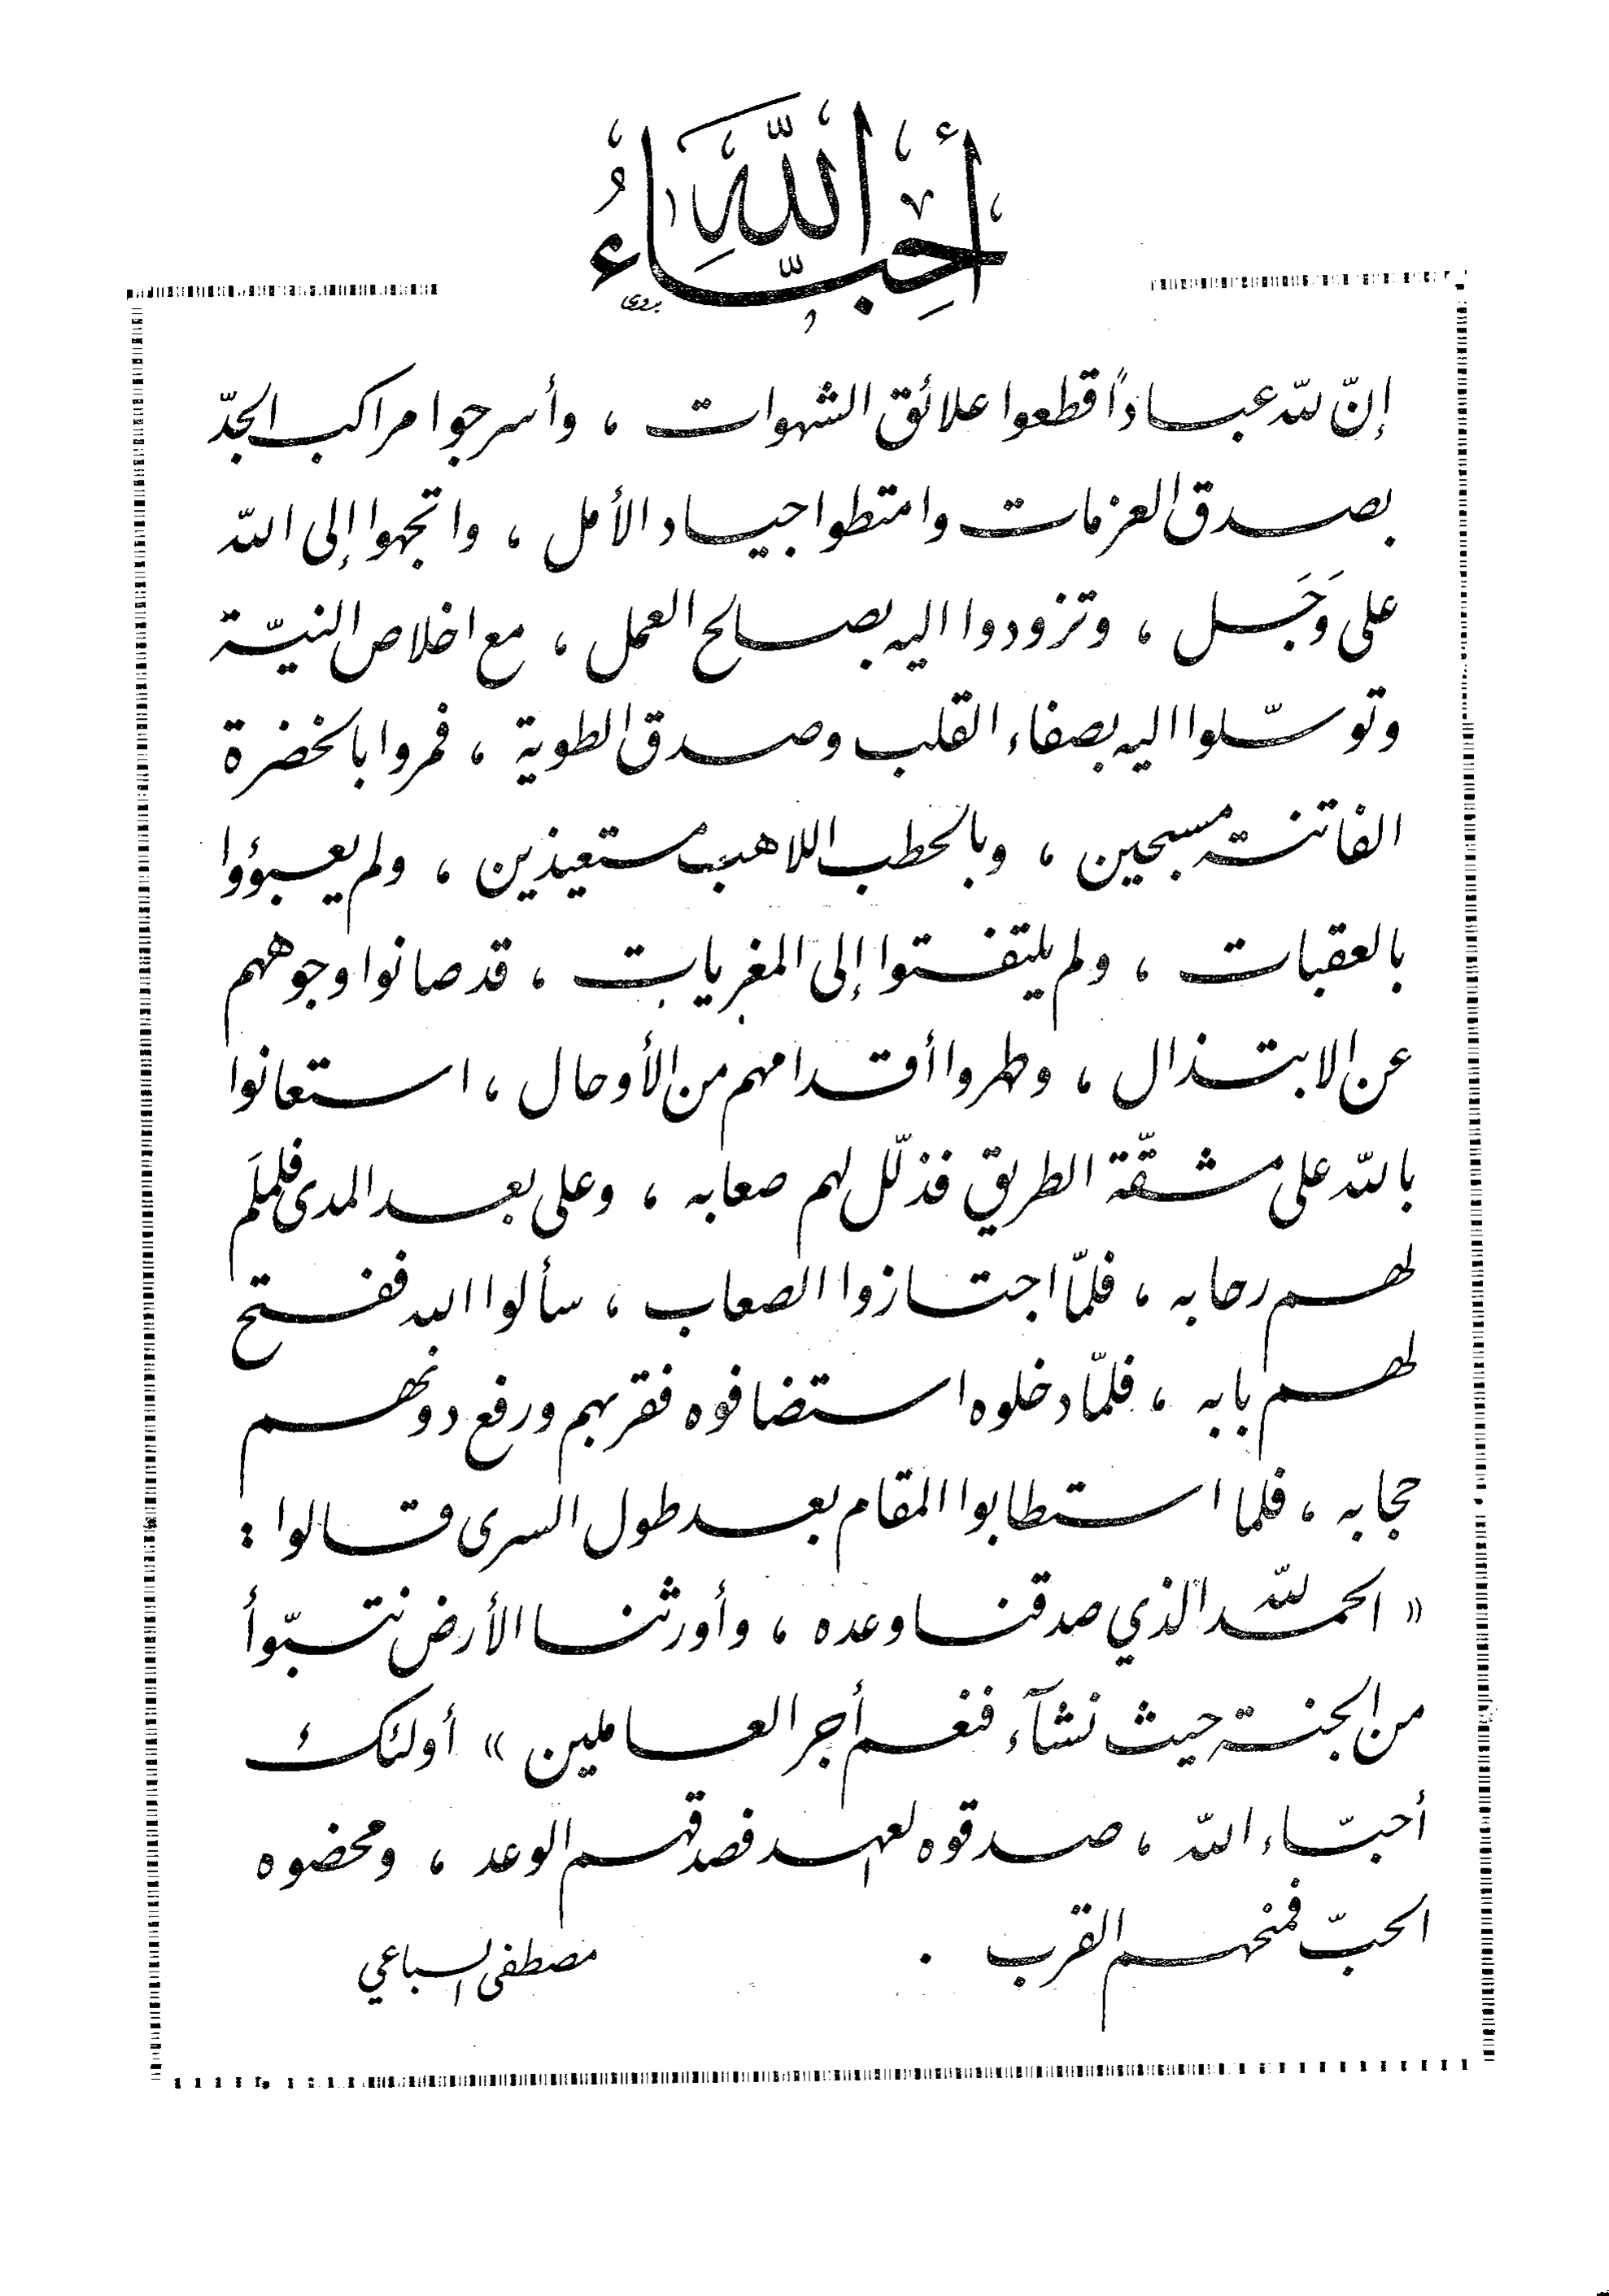 أَحِبَّاءُ اللَّهِ
بدوي
إنّ للّه عباداً قطعوا علائق الشهوات ، وأسرجوا مراكب الجدّ
بصدق العزمات وامتطوا جياد الأمل ، واتجهوا إلى اللّه
على وَجَل ، وتزودوا اليه بصالح العمل ، مع اخلاص النيّة
وتوسّلوا اليه بصفاء القلب وصدق الطوية ، فمروا بالخضرة
الفاتنة مسبحين ، وبالحطب اللاهب مستعيذين ، ولم يعبؤوا
بالعقبات ، ولم يلتفتوا إلى المغريات ، قد صانوا وجوههم
عن الابتذال ، وطهروا أقدامهم من الأوحال ، استعانوا
باللّه على مشقّة الطريق فذلّل لهم صعابه ، وعلى بعد المدى فلملَم
لهم رحابه ، فلمّا اجتازوا الصعاب ، سألوا الله ففتح
لهم بابه ، فلمّا دخلوه استضافوه فقربهم ورفع دونهم
حجابه ، فلما استطابوا المقام بعد طول السرى قالوا :
« الحمد للّه الذي صدقنا وعده ، وأورثنا الأرض نتبوّأ
من الجنة حيث نشآء فنعم أجر العاملين » أولئك
أحبّاء اللّه ، صدقوه العهد فصدقهم الوعد ، ومحضوه
الحبّ فمنحهم القرب .
مصطفى السباعي